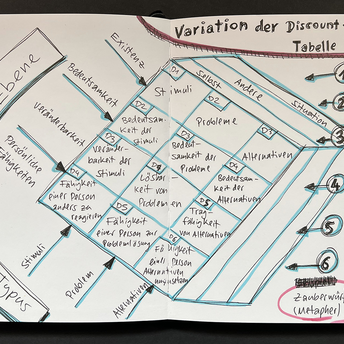 Variation der Discount-
Tabelle
Ebene
Typus
Existenz
Bedeutsamkeit
Veränderbarkeit
Persönliche
Fähigkeiten
Stimuli
Problem
Alternativen
Selbst
Andere
Situation
1
2
3
4
5
6
D1
Stimuli
D2
Bedeutsam-
keit der
Stimuli
D2
Probleme
D3
Verän-
derbarkeit der
Stimuli
D3
Bedeutsam-
keit der
Probleme
D3
Alternativen
D4
Fähigkeit
einer Person
anders zu
reagieren
D4
Lösbar-
keit von
Problemen
D4
Bedeutsam-
keit der
Alternativen
D5
Fähigkeit
einer Person zur
Problemlösung
D5
Trag-
fähigkeit
von Alternativen
D6
Fähigkeit
einer Person
Alternativen
umzusetzen
Zauberwürf
(Metapher)